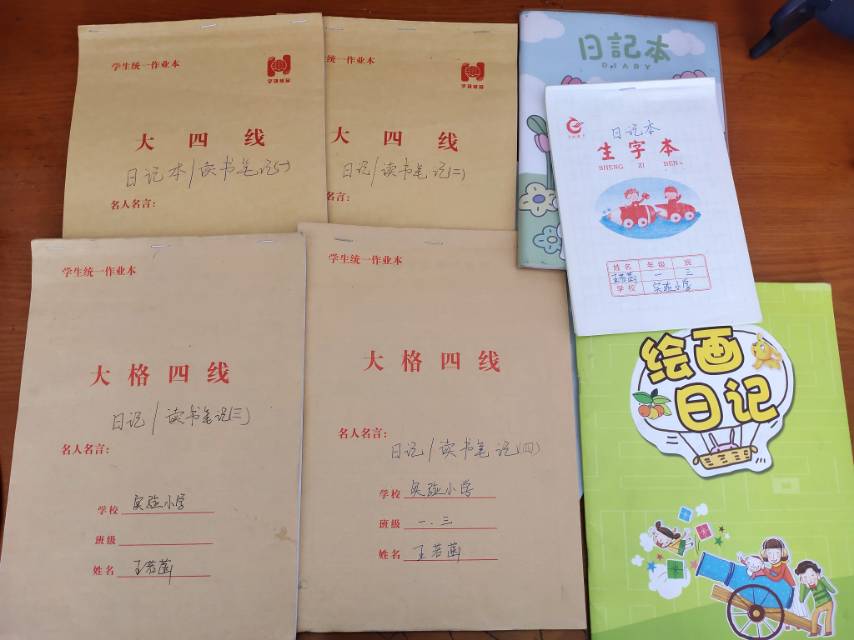 学生统一作业本
大四线
日记本/读书笔记(一)
名人名言:
学生统一作业本
大四线
日记/读书笔记(二)
名言:
日記本
DIARY
日记本
生字本
SHENG ZI BEN
姓名 年级 班
王若菡 一 三
学校 实验小学
学生统一作业本
大格四线
日记/读书笔记(三)
名人名言:
学校 实验小学
班级
姓名 王若菡
学生统一作业本
大格四线
名人名言:
日记/读书笔记(四)
学校 实验小学
班级 一.三
姓名 王若菡
绘画
日记